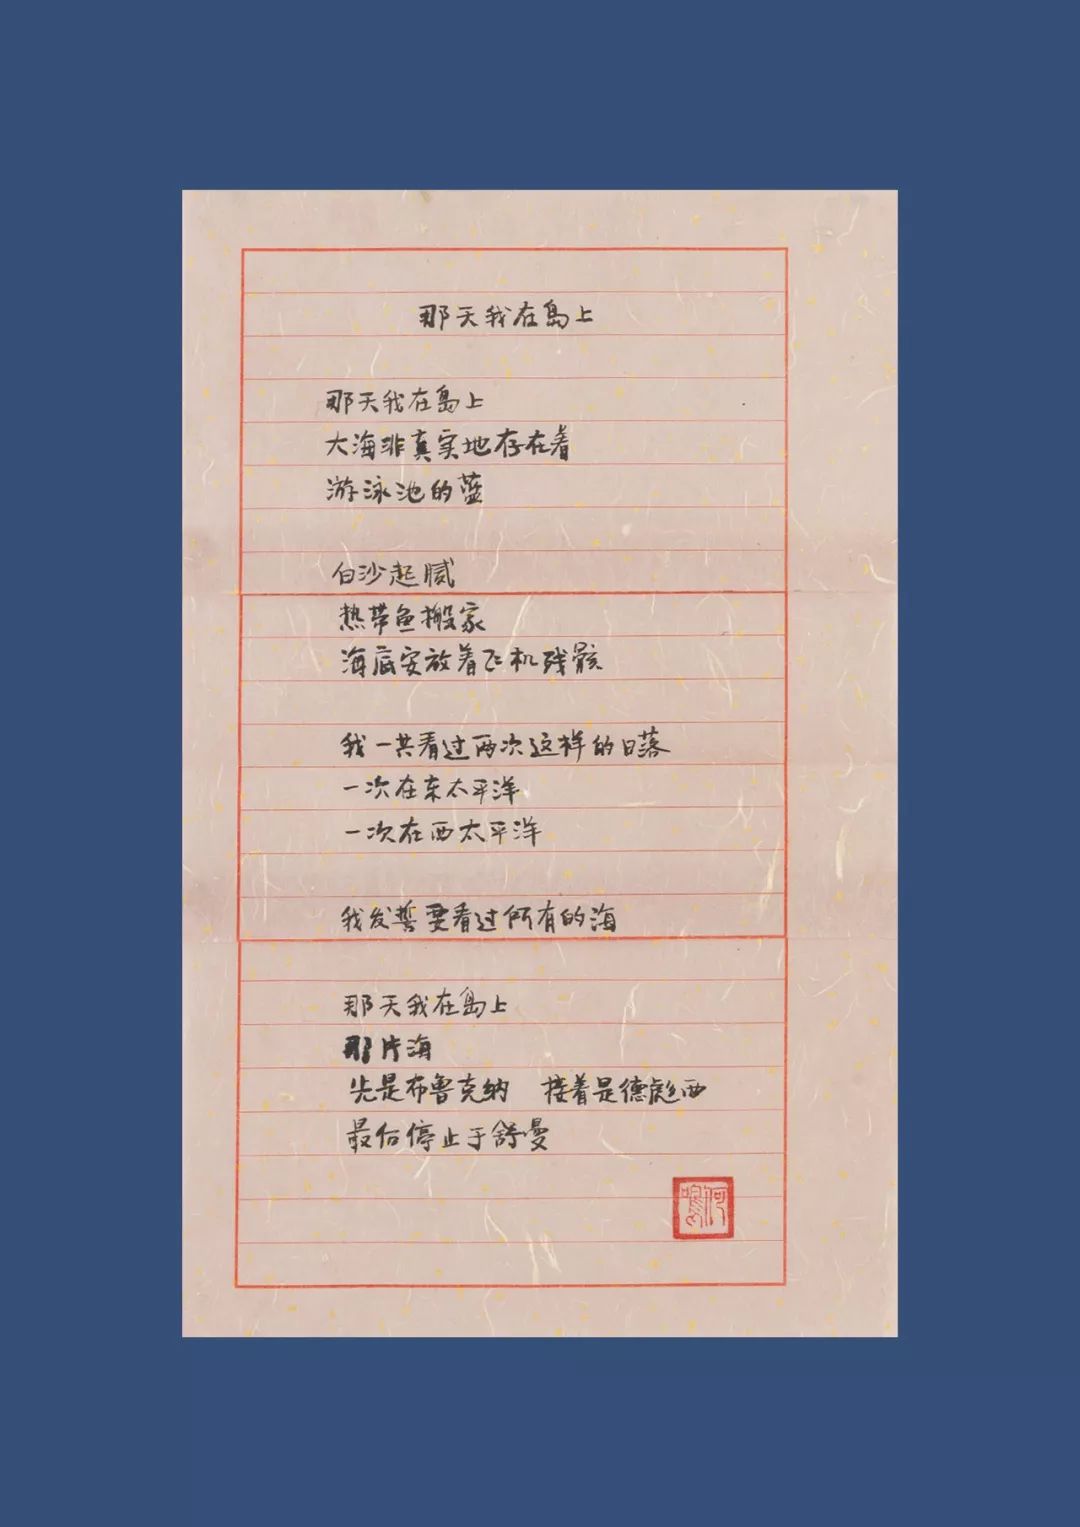 那天我在岛上
那天我在岛上
大海非真实地存在着
游泳池的蓝
白沙起腻
热带鱼搬家
海底安放着飞机残骸
我一共看过两次这样的日落
一次在东太平洋
一次在西太平洋
我发誓要看过所有的海
那天我在岛上
那片海
先是布鲁克纳 接着是德彪西
最后停止于舒曼
何鸣